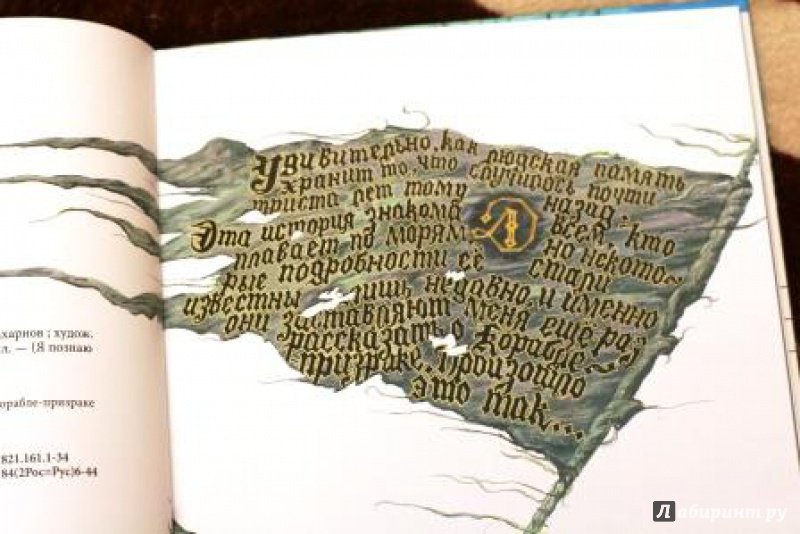 харнов ; худож.
л. — (Я познаю
орабле-призраке
821.161.1-34
84(2Рос=Рус)6-44
Удивительно, как людская память
хранит то, что случилось почти
триста лет тому назад.
Эта история знакома всем, кто
плавает по морям, но некото-
рые подробности её стали
известны лишь недавно, и именно
они заставляют меня ещё раз
рассказать о Корабле-
призраке. Произошло
это так...
Л
Лабиринт.ру